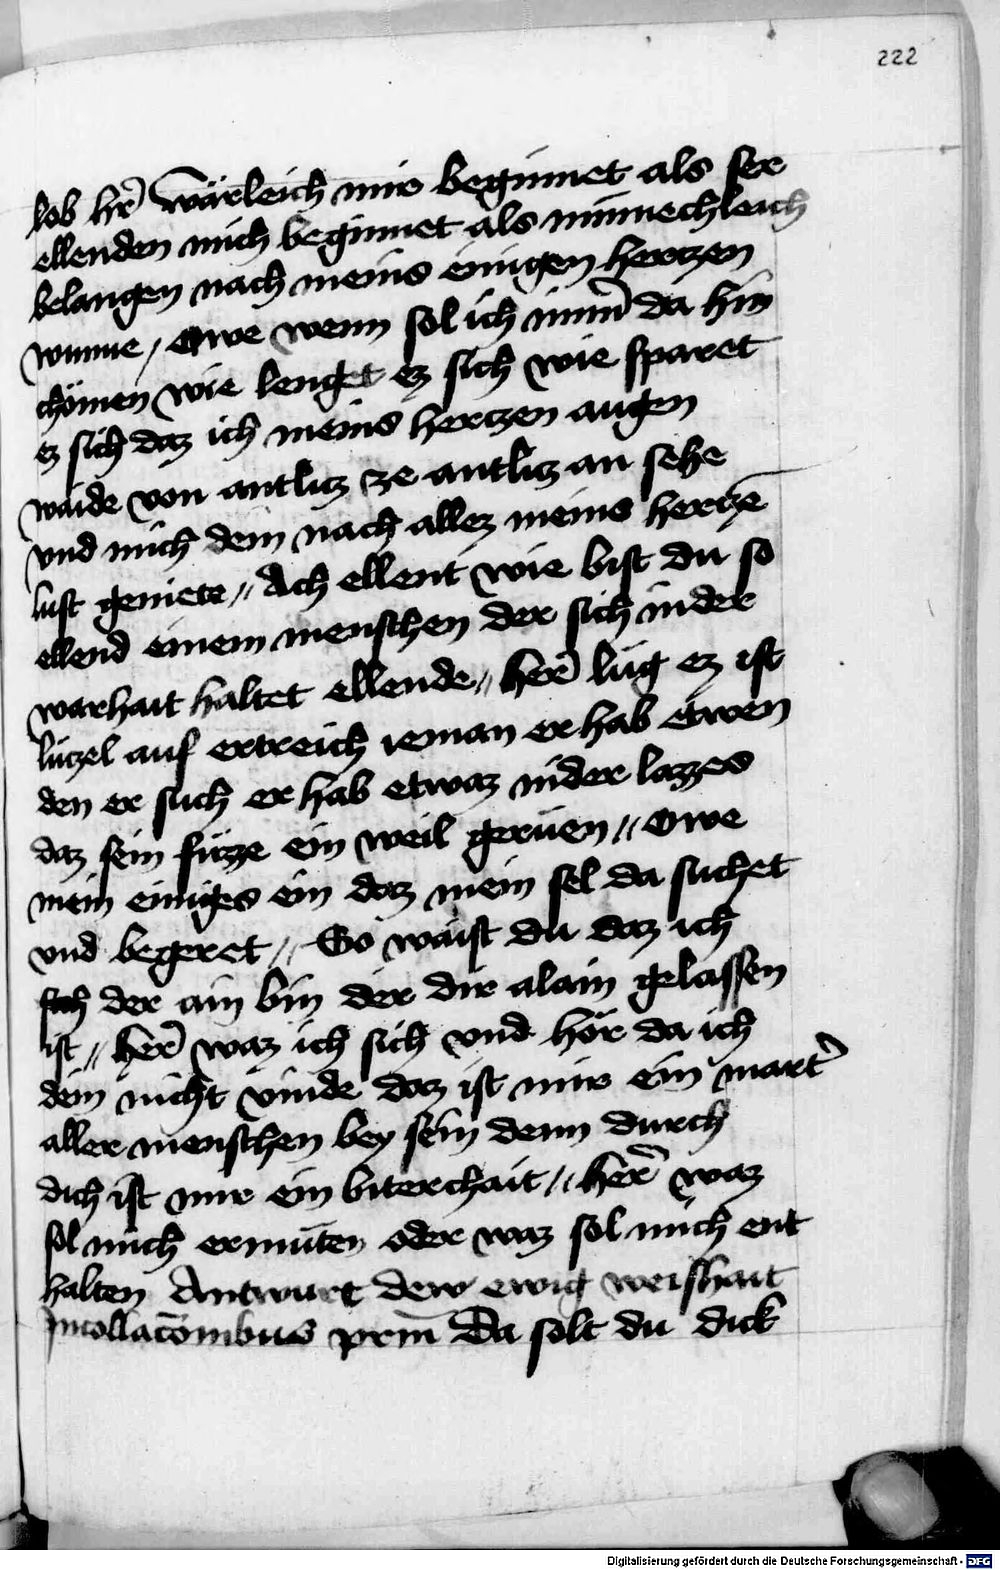 222
lob hr̄ wärleich mir beginnet als ser
ellenden mich beginnet als minnechleich
belangen nach meins einigen hertzen
wunne / Owe wenn sol ich nimm̄ da hin
chömen wie lenget ez sich wie sparet
ez sich daz ich meins hertzen augen
waide von antlitz ze antlitz an sehe
vnd mich dein nach allez meins hertzē
lust geniete // Ach ellent wie bist du so
ellend einem menschen der sich in der
warhait haltet ellende // her̄ lůg ez ist
lützel auf ertreich ieman er hab etwen
den er such er hab etwaz nider lazzes
daz sein füzze ein weil gerüen // Owe
mein einiges ein daz mein sel da suchet
vnd begeret // So waist du daz ich
der ain bin der dir alain gelassen
ist // her̄ waz ich sich vnd hör da ich
dein nicht vinde daz ist mir ein mart̄
aller menschen bey sein denn durch
dich ist mir ein biterchait // her̄ waz
sol mich ermüten oder waz sol mich ent
halten Antwurt dew ewig weishait
da solt du dick
Digitalisierung gefördert durch die Deutsche Forschungsgemeinschaft - DFG